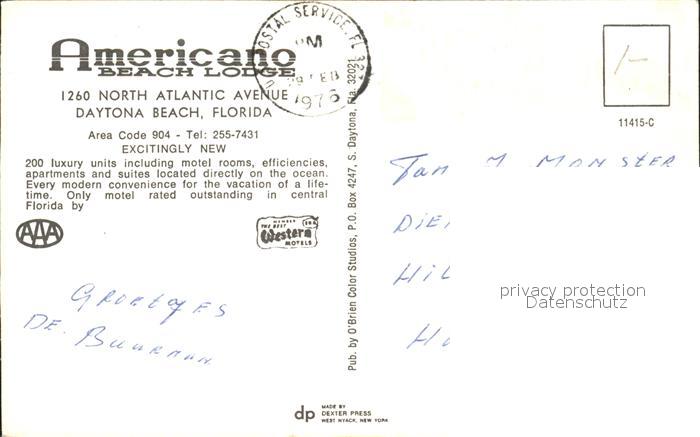 Americano
BEACH LODGE
1260 NORTH ATLANTIC AVENUE
DAYTONA BEACH, FLORIDA
Area Code 904 - Tel: 255-7431
EXCITINGLY NEW
200 luxury units including motel rooms, efficiencies,
apartments and suites located directly on the ocean.
Every modern convenience for the vacation of a life-
time. Only motel rated outstanding in central
Florida by
AAA
MEMBER
THE BEST
Western
MOTELS
GROETJES
DE. BUURMAN
POSTAL SERVICE, FL
PM
1976
Pub. by O'Brien Color Studios, P.O. Box 4247, S. Daytona, Fla. 32021
dp
MADE BY
DEXTER PRESS
WEST NYACK, NEW YORK
1-
11415-C
M MONSTER
DIE
HIL
privacy protection
Datenschutz